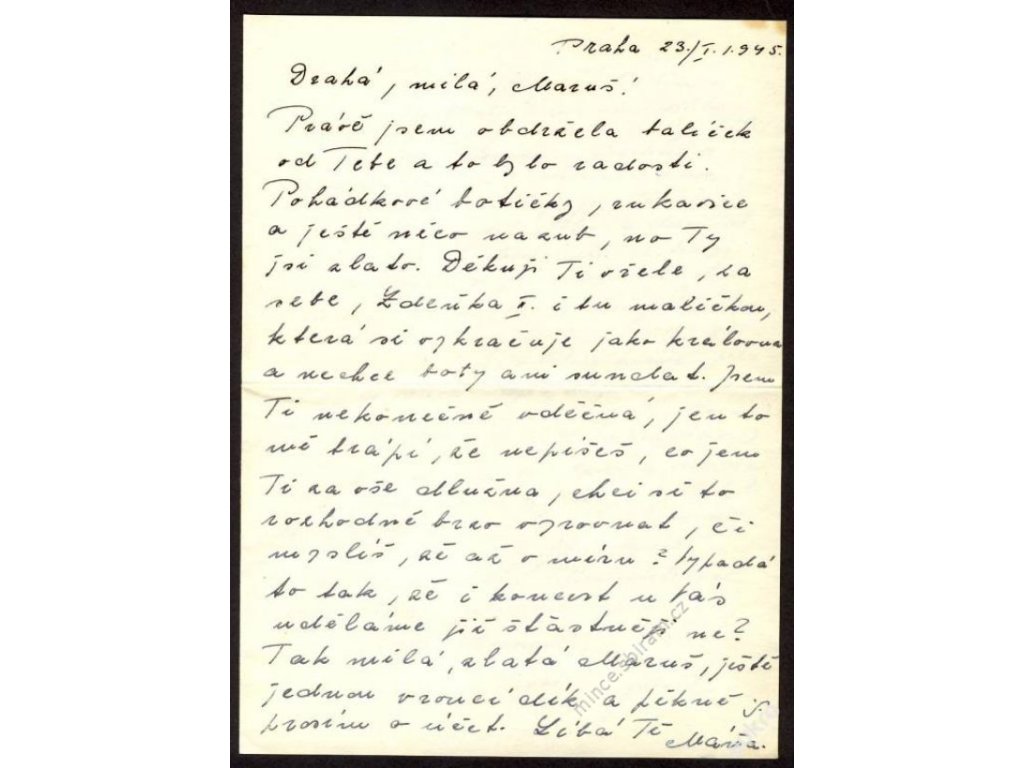 Praha 23./I. 1945.
Drahá, milá, Maruš!
Právě jsem obdržela balíček
od Tebe a to bylo radosti.
Pohádkové botičky, rukavice
a ještě něco na zub, no Ty
jsi zlato. Děkuji Ti vřele, za
sebe, Zdeňka II. i tu maličkou,
která si vykračuje jako královna
a nechce boty ani sundat. Jsem
Ti nekonečně vděčná, jen to
mě trápí, že nepíšeš, co jsem
Ti za vše dlužna, chci se to
rozhodně brzo vyrovnat, či
myslíš, že až v míru? Vypadá
to tak, že i koncert u Vás
uděláme již šťastněji ne?
Tak milá, zlatá Maruš, ještě
jednou vroucí dík a pěkně
prosím o účet. Líbá Tě
Máňa.
mince.sbiram.cz